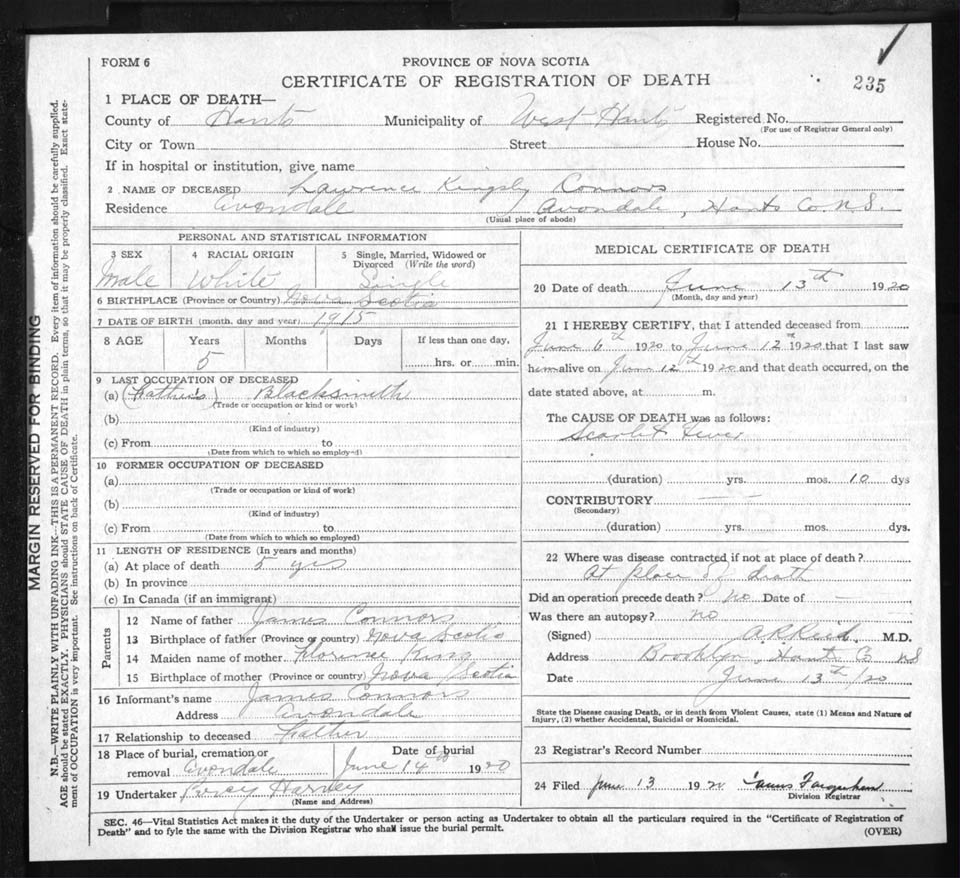 FORM 6
PROVINCE OF NOVA SCOTIA
CERTIFICATE OF REGISTRATION OF DEATH
235
1 PLACE OF DEATH—
County of Hants Municipality of West Hants Registered No.
(For use of Registrar General only)
City or Town Street House No.
If in hospital or institution, give name
2 NAME OF DECEASED Lawrence Kingsly Connors
Residence Avondale Avondale, Hants Co. N.S.
(Usual place of abode)
PERSONAL AND STATISTICAL INFORMATION
3 SEX 4 RACIAL ORIGIN 5 Single, Married, Widowed or
Divorced (Write the word)
Male White Single
6 BIRTHPLACE (Province or Country) Nova Scotia
7 DATE OF BIRTH (month, day and year) 1915
8 AGE Years Months Days If less than one day,
5 hrs. or min.
9 LAST OCCUPATION OF DECEASED
(a) (Father's) Blacksmith
(Trade or occupation or kind or work)
(b)
(Kind of industry)
(c) From to
(Date from which to which so employed)
10 FORMER OCCUPATION OF DECEASED
(a)
(Trade or occupation or kind of work)
(b)
(Kind of industry)
(c) From to
(Date from which to which so employed)
11 LENGTH OF RESIDENCE (In years and months)
(a) At place of death 5 yrs
(b) In province
(c) In Canada (if an immigrant)
Parents
12 Name of father James Connors
13 Birthplace of father (Province or country) Nova Scotia
14 Maiden name of mother Florence King
15 Birthplace of mother (Province or country) Nova Scotia
16 Informant's name James Connors
Address Avondale
17 Relationship to deceased Father
18 Place of burial, cremation or Date of burial
removal Avondale June 14th 1920
19 Undertaker Percy Harvey
(Name and Address)
MEDICAL CERTIFICATE OF DEATH
20 Date of death June 13th 1920
(Month, day and year)
21 I HEREBY CERTIFY, that I attended deceased from
June 6th 1920 to June 12th 1920 that I last saw
him alive on June 12th 1920 and that death occurred, on the
date stated above, at m.
The CAUSE OF DEATH was as follows:
Scarlet Fever
(duration) yrs. mos. 10 dys
CONTRIBUTORY
(Secondary)
(duration) yrs. mos. dys.
22 Where was disease contracted if not at place of death?
At place of death
Did an operation precede death? No Date of
Was there an autopsy? No
(Signed) A R Reid M.D.
Address Brooklyn, Hants Co NS
Date June 13th/20
State the Disease causing Death, or in death from Violent Causes, state (1) Means and Nature of
Injury, (2) whether Accidental, Suicidal or Homicidal.
23 Registrar's Record Number
24 Filed June 13 1920
Division Registrar
SEC. 46—Vital Statistics Act makes it the duty of the Undertaker or person acting as Undertaker to obtain all the particulars required in the "Certificate of Registration of
Death" and to fyle the same with the Division Registrar who shall issue the burial permit.
(OVER)
MARGIN RESERVED FOR BINDING
N.B.—WRITE PLAINLY WITH UNFADING INK—THIS IS A PERMANENT RECORD. Every item of information should be carefully supplied.
AGE should be stated EXACTLY. PHYSICIANS should STATE CAUSE OF DEATH in plain terms, so that it may be properly classified. Exact state-
ment of OCCUPATION is very important. See instructions on back of Certificate.